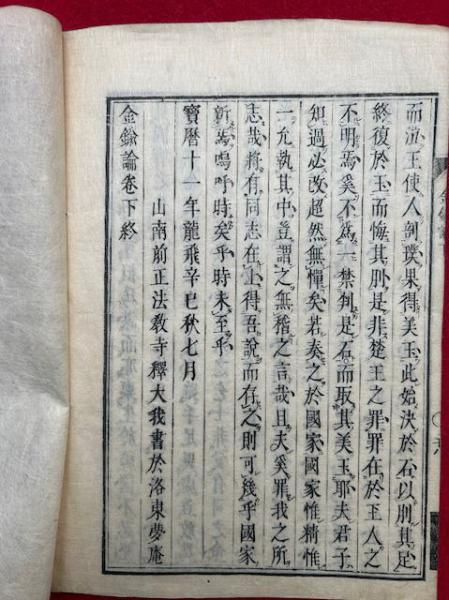 而泣王使人剖璞果得美玉此始決於石以刖其足
終復於玉而悔其刖是非楚王之罪罪在於玉人之
不明焉奚不爲一禁制是石而取其美玉耶夫君子
知過必改超然無憚矣若奏之於國家國家惟精惟
一允執其中豈謂之無稽之言哉且夫奚罪我之所
志哉將有同志在上得吾說而存之則可幾乎國家
新焉嗚呼時矣乎時未至乎
寶曆十一年龍飛辛巳秋七月
山南前正法教寺釋大我書於洛東夢庵
金鍮論卷下終